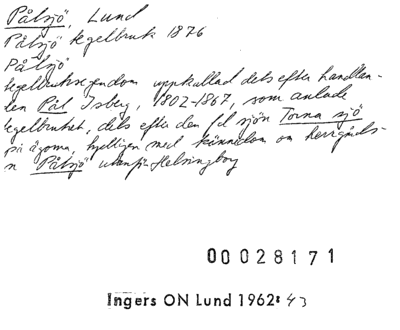 Pålsjö, Lund
Pålsjö tegelbruk 1876
Pålsjö
tegelbruksegendom uppkallad dels efter handlan-
den Pål Isberg, 1802-1867, som anlade
tegelbruket, dels efter den fd sjön Torna sjö
på ägorna, tydligen med kännedom om herrgårds-
n Pålsjö utanför Helsingborg
00028171
Ingers ON Lund 1962: 43